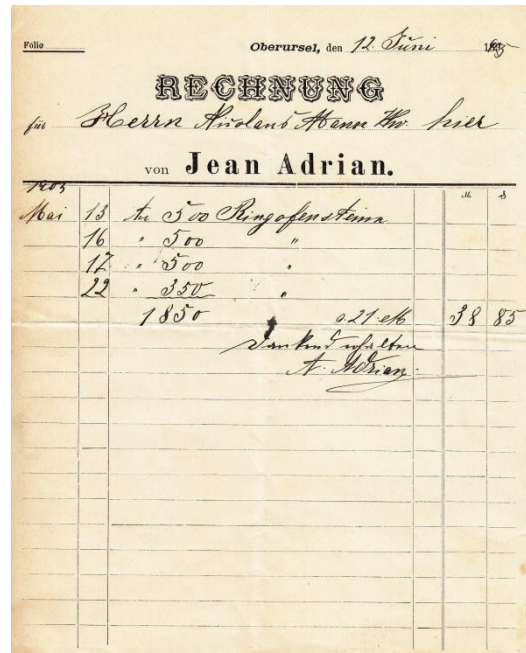 Folio
Oberursel, den 12. Juni 1905
RECHNUNG
für Herrn Mann Ww. hier
von Jean Adrian.
1905
M. ₰
Mai 13 An 500 Ringofensteine
16 " 500 "
17 " 500 "
22 " 350 "
1850 a 21 M 38 85
Dankend erhalten
A. Adrian.